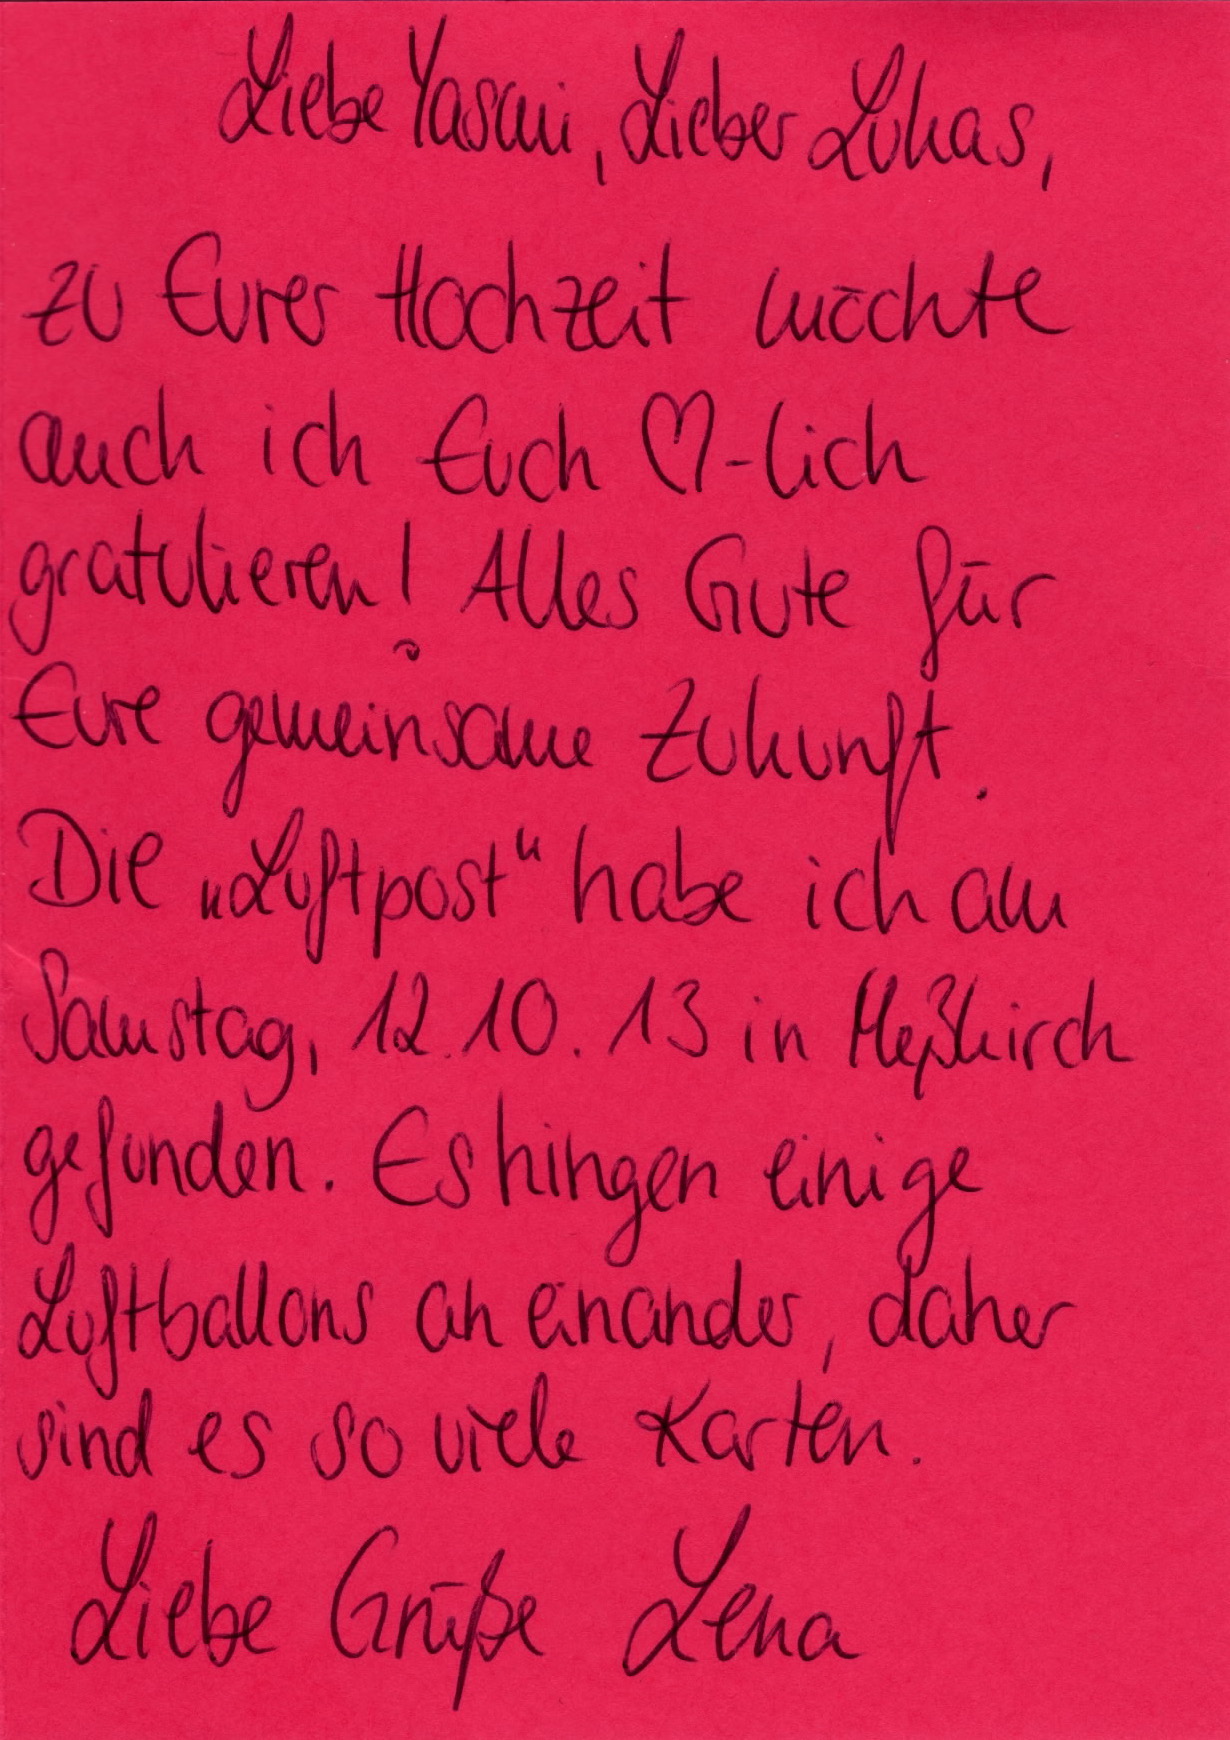 Liebe Yasmi, Lieber Lukas,
zu Eurer Hochzeit möchte
auch ich Euch ♡-lich
gratulieren! Alles Gute für
Eure gemeinsame Zukunft.
Die „Luftpost“ habe ich am
Samstag, 12.10.13 in Meßkirch
gefunden. Es hingen einige
Luftballons an einander, daher
sind es so viele Karten.
Liebe Grüße Lena